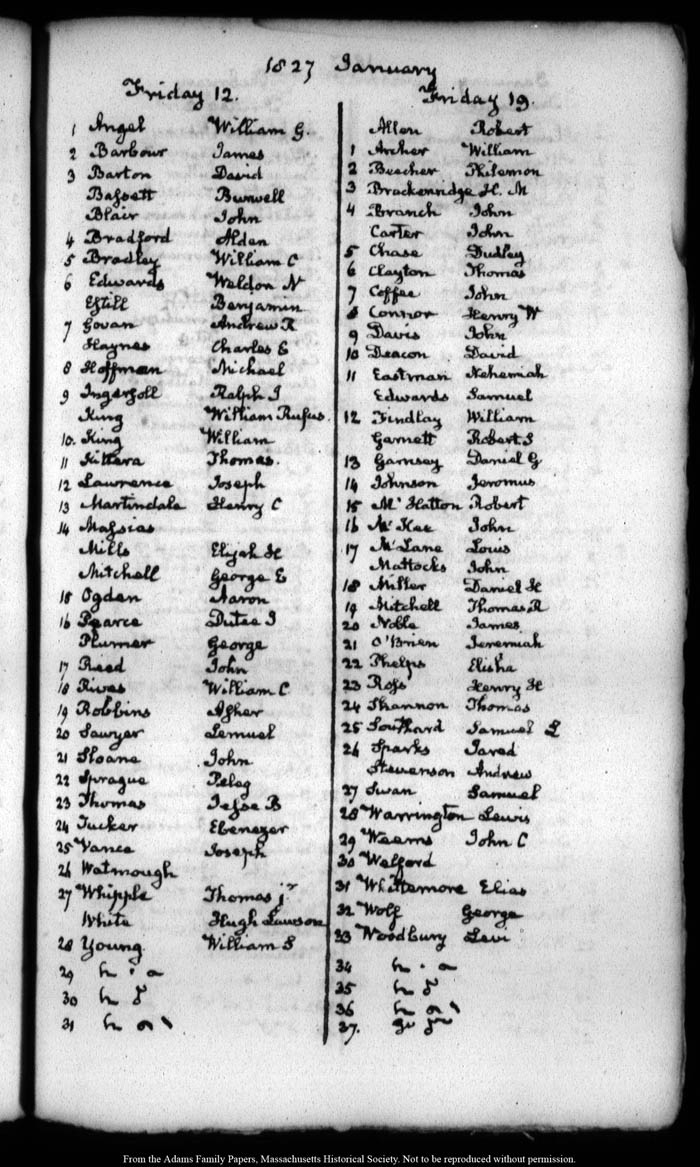 1827 January
Friday 12.
1 Angel William G
2 Barbour James
3 Barton David
Bassett Burwell
Blair John
4 Bradford Alden
5 Bradley William C
6 Edwards Weldon N
Estill Benjamin
7 Govan Andrew R
Haynes Charles E
8 Hoffman Michael
9 Ingersoll Ralph I
King William Rufus.
10. King William
11 Kittera Thomas.
12 Lawrence Joseph
13 Martindale Henry C
14 Massias
Mills Elijah H
Mitchell George E
15 Ogden Aaron
16 Pearce Dutee I
Plumer George
17 Reed John
18 Rives William C
19 Robbins Asher
20 Sawyer Lemuel
21 Sloane John
22 Sprague Peleg
23 Thomas Jesse B
24 Tucker Ebenezer
25 Vance Joseph
26 Watmough
27 Whipple Thomas jr
White Hugh Lawson
28 Young William S
29
30
31
Friday 19.
Allen Robert
1 Archer William
2 Beecher Philemon
3 Brackenridge H. M
4 Branch John
Carter John
5 Chase Dudley
6 Clayton Thomas
7 Coffee John
8 Connor Henry W
9 Davis John
10 Deacon David
11 Eastman Nehemiah
Edwards Samuel
12 Findlay William
Garnett Robert S
13 Garnsey Daniel G
14 Johnson Jeromus
15 Mc Hatton Robert
16 Mc Kee John
17 McLane Louis
Mattocks John
18 Miller Daniel H
19 Mitchell Thomas R
20 Noble James
21 O'Brien Jeremiah
22 Phelps Elisha
23 Ross Henry H
24 Shannon Thomas
25 Southard Samuel L
26 Sparks Jared
Stevenson Andrew
27 Swan Samuel
28 Warrington Lewis
29 Weems John C
30 Welford
31 Whittemore Elias
32 Wolf George
33 Woodbury Levi
34
35
36
37.
From the Adams Family Papers, Massachusetts Historical Society. Not to be reproduced without permission.